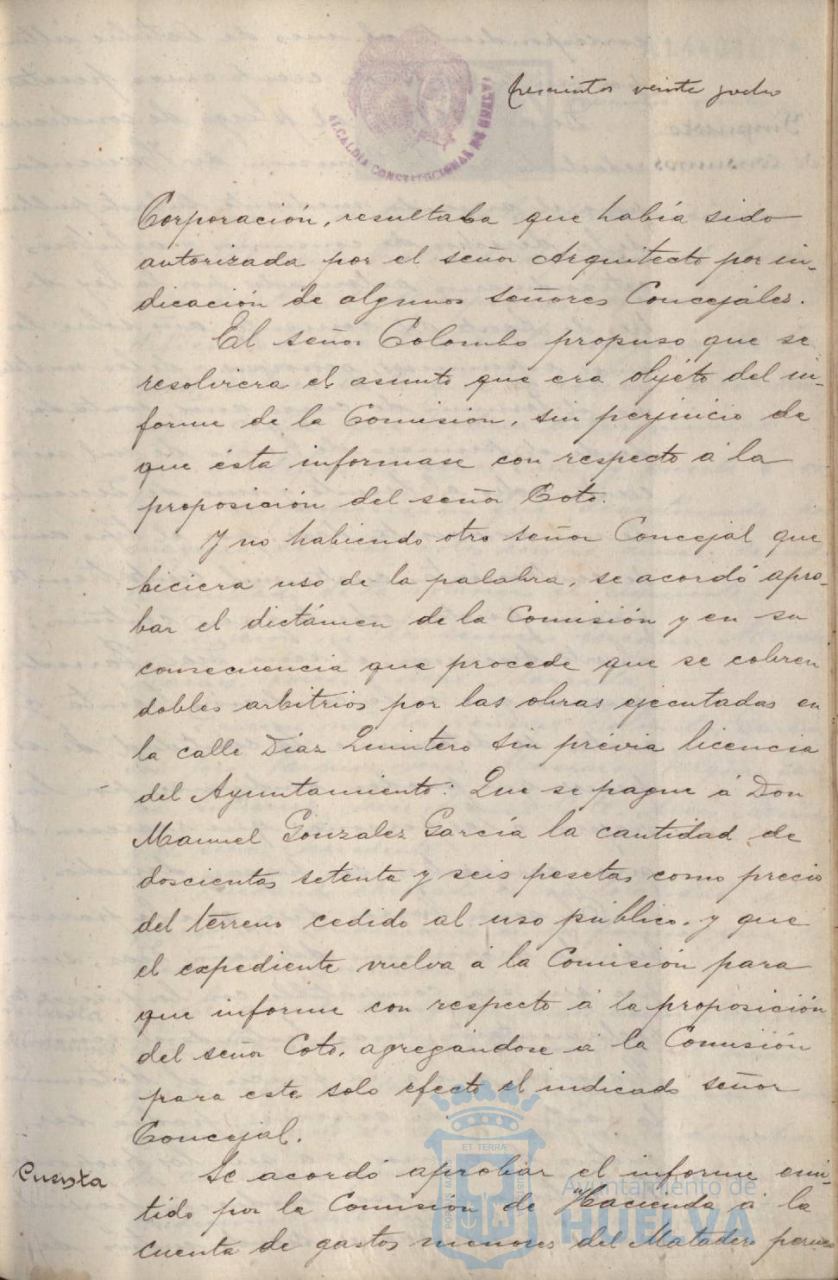 ALCALDIA CONSTITUCIONAL DE HUELVA
trescientos veinte y ocho
Corporación, resultaba que había sido
autorizada por el señor Arquitecto por in-
dicación de algunos señores Concejáles.
El señor Colombo propuso que se
resolviera el asunto que era objéto del in-
forme de la Comisión, sin perjuicio de
que ésta informase con respecto á la
proposición del señor Coto.
Y no habiendo otro señor Concejal que
hiciera uso de la palabra, se acordó apro-
bar el dictámen de la Comisión y en su
consecuencia que procede que se cobren
dobles arbitrios por las obras ejecutadas en
la calle Díaz Quintero sin prévia licencia
del Ayuntamiento: Que se pague á Don
Manuel Gonzalez García la cantidad de
doscientas setenta y seis pesetas como precio
del terreno cedido al uso público, y que
el expediente vuelva á la Comisión para
que informe con respecto á la proposición
del señor Coto, agregándose á la Comisión
para este solo efecto el indicado señor
Concejal.
Cuenta
Se acordó aprobar el informe emi-
tido por la Comisión de Hacienda á la
cuenta de gastos menores del Matadero
ET TERRÆ
Ayuntamiento de
HUELVA